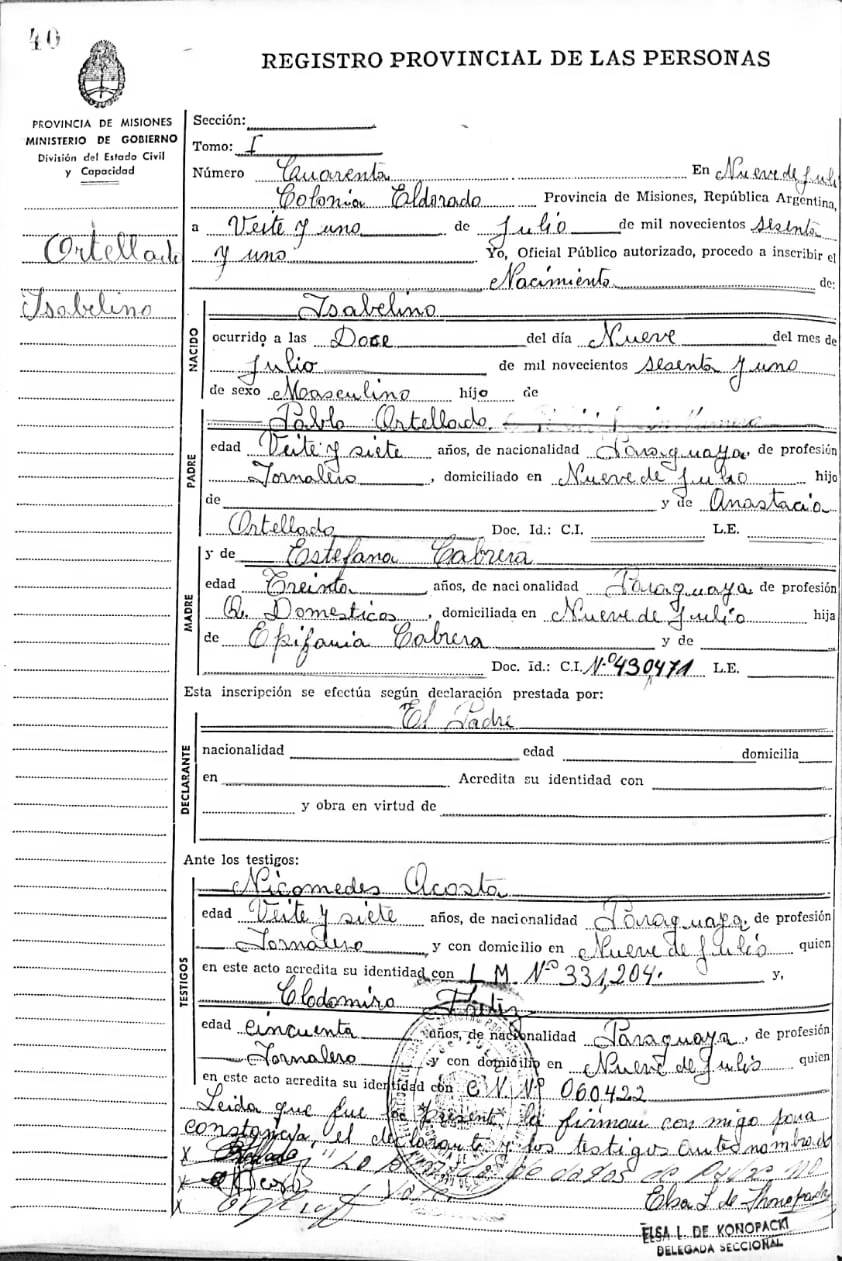 40
REGISTRO PROVINCIAL DE LAS PERSONAS
PROVINCIA DE MISIONES
MINISTERIO DE GOBIERNO
División del Estado Civil
y Capacidad
Ortellado
Isabelino
Sección:
Tomo: I
Número Cuarenta En Nueve de Juli
Colonia Eldorado Provincia de Misiones, República Argentina,
a Veite y uno de Julio de mil novecientos Sesenta
y uno Yo, Oficial Público autorizado, procedo a inscribir el
Nacimiento de:
NACIDO
Isabelino
ocurrido a las Doce del día Nueve del mes de
Julio de mil novecientos sesenta y uno
de sexo Masculino hijo de
PADRE
Pablo Ortellado.
edad Veite y siete años, de nacionalidad Paraguaya, de profesión
Jornalero, domiciliado en Nueve de Julio hijo
de y de Anastacia
Ortellado Doc. Id.: C.I. L.E.
MADRE
y de Estefana Cabrera
edad Treinta años, de nacionalidad Paraguaya de profesión
Q. Domesticos, domiciliada en Nueve de Julio hija
de Epifania Cabrera y de
Doc. Id.: C.I. Nº 430,471 L.E.
Esta inscripción se efectúa según declaración prestada por:
DECLARANTE
El Padre
nacionalidad edad domicilia
en Acredita su identidad con
y obra en virtud de
Ante los testigos:
TESTIGOS
Nicomedes Acosta
edad Veite y siete años, de nacionalidad Paraguaya, de profesión
Jornalero y con domicilio en Nueve de Julio quien
en este acto acredita su identidad con L M. Nº 331,204. y,
Clodomiro
edad cincuenta años, de nacionalidad Paraguaya, de profesión
Jornalero y con domicilio en Nueve de Julio quien
en este acto acredita su identidad con C N Nº 060422
Leida que fue la present la firman con migo para
constancia, el declarante y los testigos antes nombrado
Elsa L de Konopacki
ELSA L. DE KONOPACKI
DELEGADA SECCIONAL